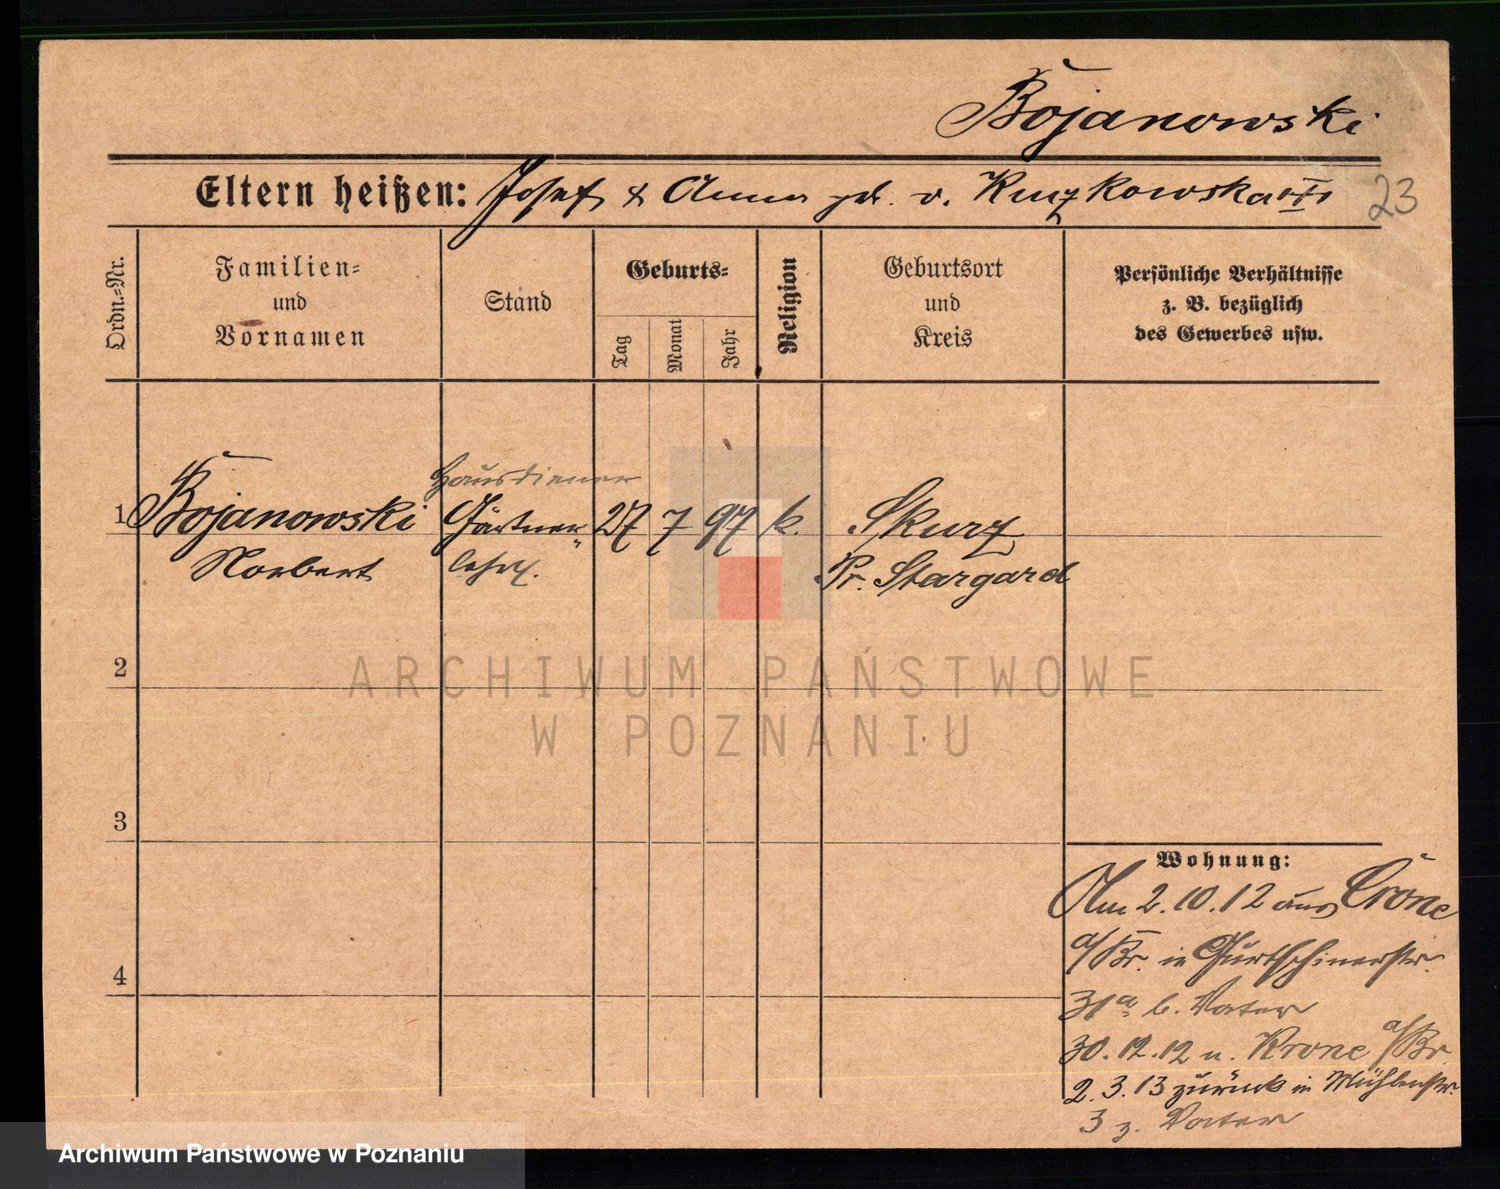 Bojanowski
Eltern heißen: Josef & Anna geb. v. Kurzkowska
23
Ordn.-Nr.
Familien-
und
Vornamen
Stand
Geburts-
Tag
Monat
Jahr
Religion
Geburtsort
und
Kreis
Persönliche Verhältnisse
z. B. bezüglich
des Gewerbes usw.
Hausdiener
1 Bojanowski Gärtner- 27 7 97 k. Skurz
Norbert lehrl. Pr. Stargard
2
3
4
Wohnung:
Am 2.10.12 aus Crone
a/Br. in Gurtschinerstr.
31a b. Vater
30.12.12 n. Krone a/Br.
2.3.13 zurück in Mühlenstr.
3 z. Vater
ARCHIWUM PAŃSTWOWE
W POZNANIU
Archiwum Państwowe w Poznaniu